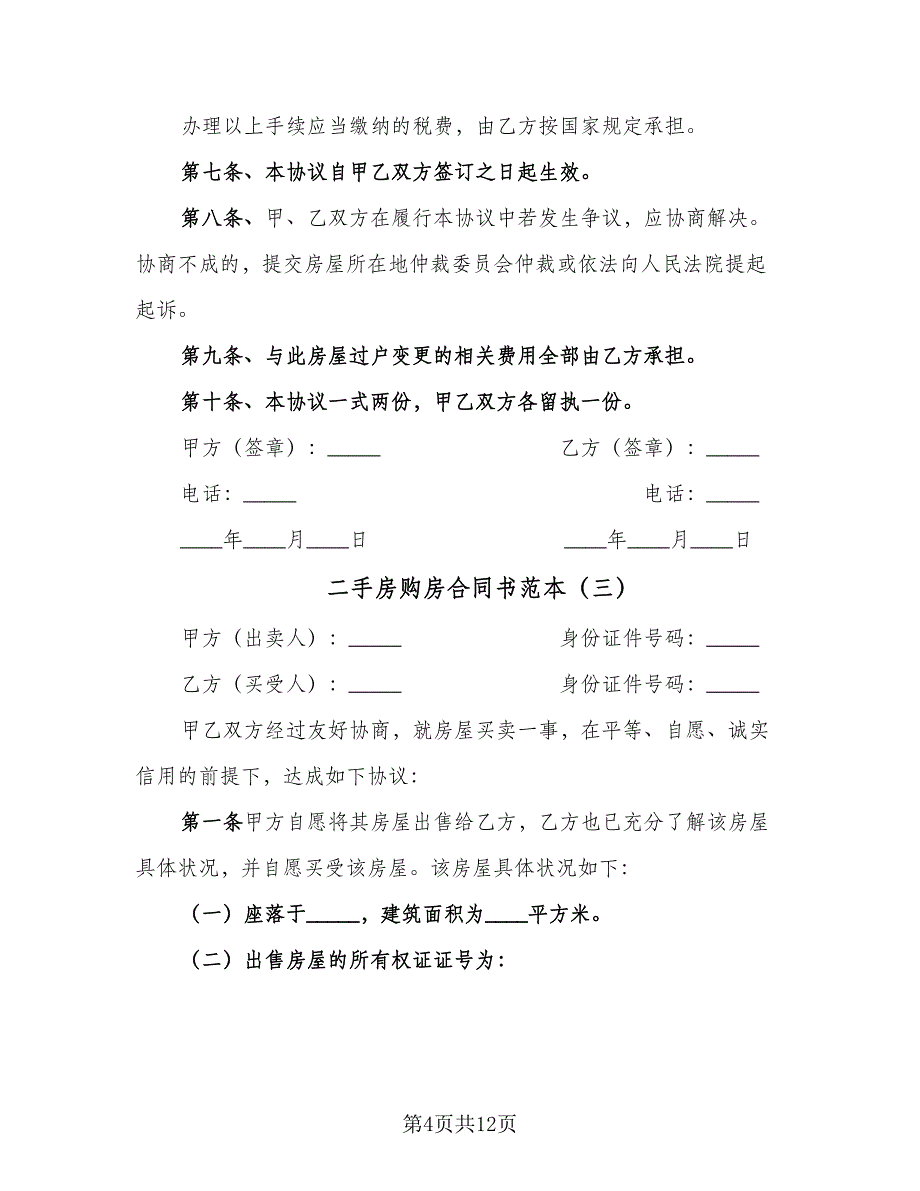 办理以上手续应当缴纳的税费，由乙方按国家规定承担。
第七条、本协议自甲乙双方签订之日起生效。
第八条、甲、乙双方在履行本协议中若发生争议，应协商解决。
协商不成的，提交房屋所在地仲裁委员会仲裁或依法向人民法院提起
起诉。
第九条、与此房屋过户变更的相关费用全部由乙方承担。
第十条、本协议一式两份，甲乙双方各留执一份。
甲方（签章）：_____ 乙方（签章）：_____
电话：_____ 电话：_____
____年____月____日 ____年____月____日
二手房购房合同书范本（三）
甲方（出卖人）：_____ 身份证件号码：_____
乙方（买受人）：_____ 身份证件号码：_____
甲乙双方经过友好协商，就房屋买卖一事，在平等、自愿、诚实
信用的前提下，达成如下协议：
第一条甲方自愿将其房屋出售给乙方，乙方也已充分了解该房屋
具体状况，并自愿买受该房屋。该房屋具体状况如下：
（一）座落于_____，建筑面积为____平方米。
（二）出售房屋的所有权证证号为：
第4页共12页